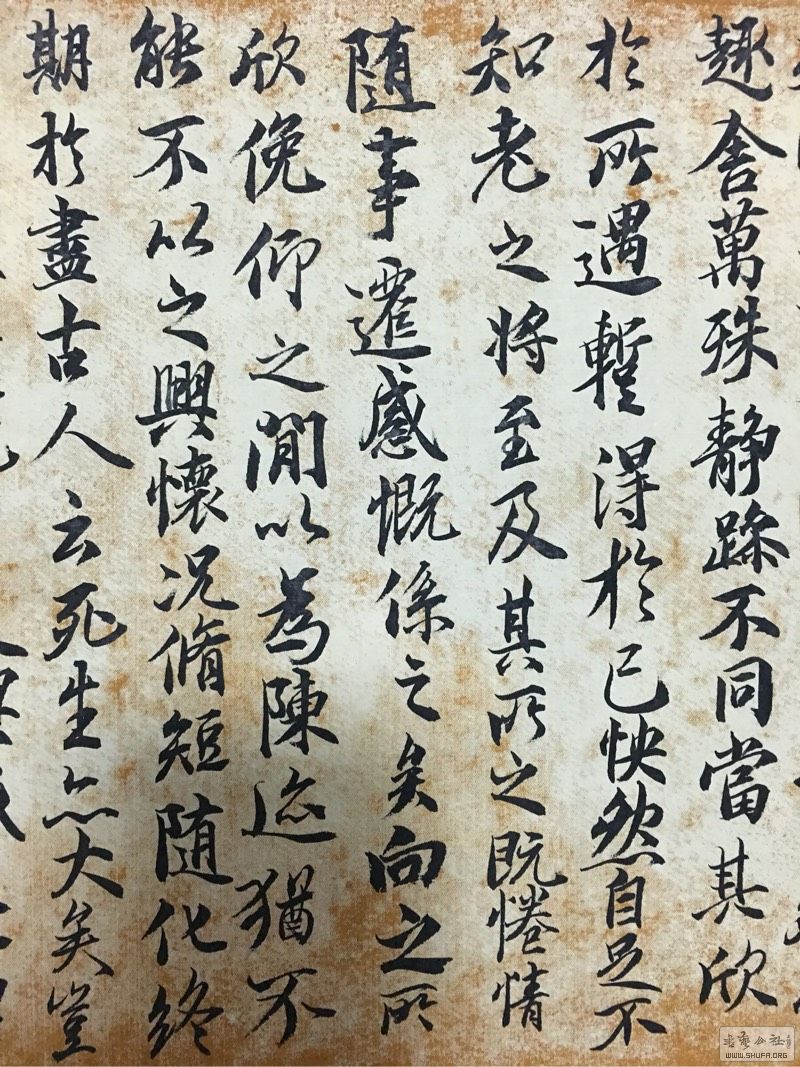 趣舍萬殊静躁不同當其欣
於所遇蹔得於己怏然自足不
知老之将至及其所之既惓情
随事遷感慨係之矣向之所
欣俛仰之間以為陳迹猶不
能不以之興懷况脩短随化終
期於盡古人云死生亦大矣豈
WWW.SHUFA.ORG